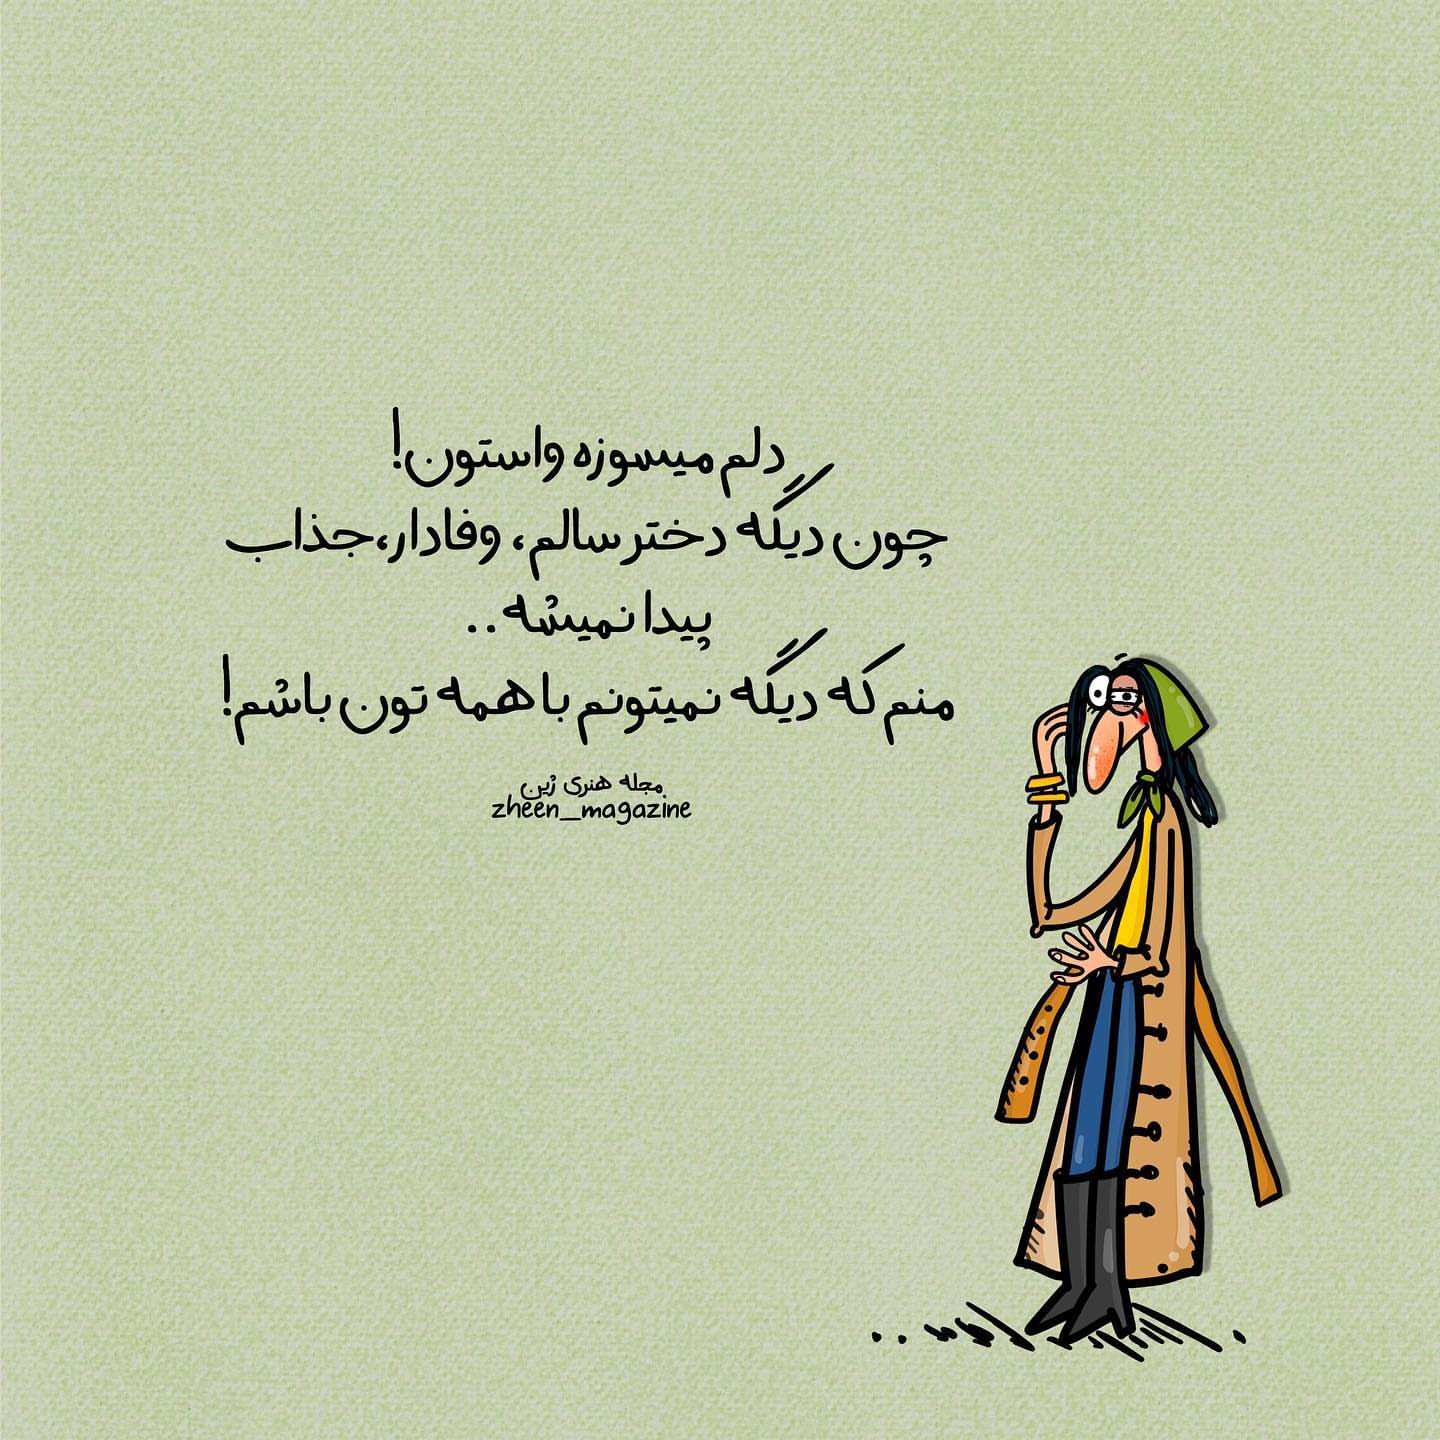 دلم میسوزه واستون!
چون دیگه دختر سالم، وفادار،جذاب
پیدا نمیشه..
منم که دیگه نمیتونم با همه تون باشم!
مجله هنری ژین
zheen_magazine